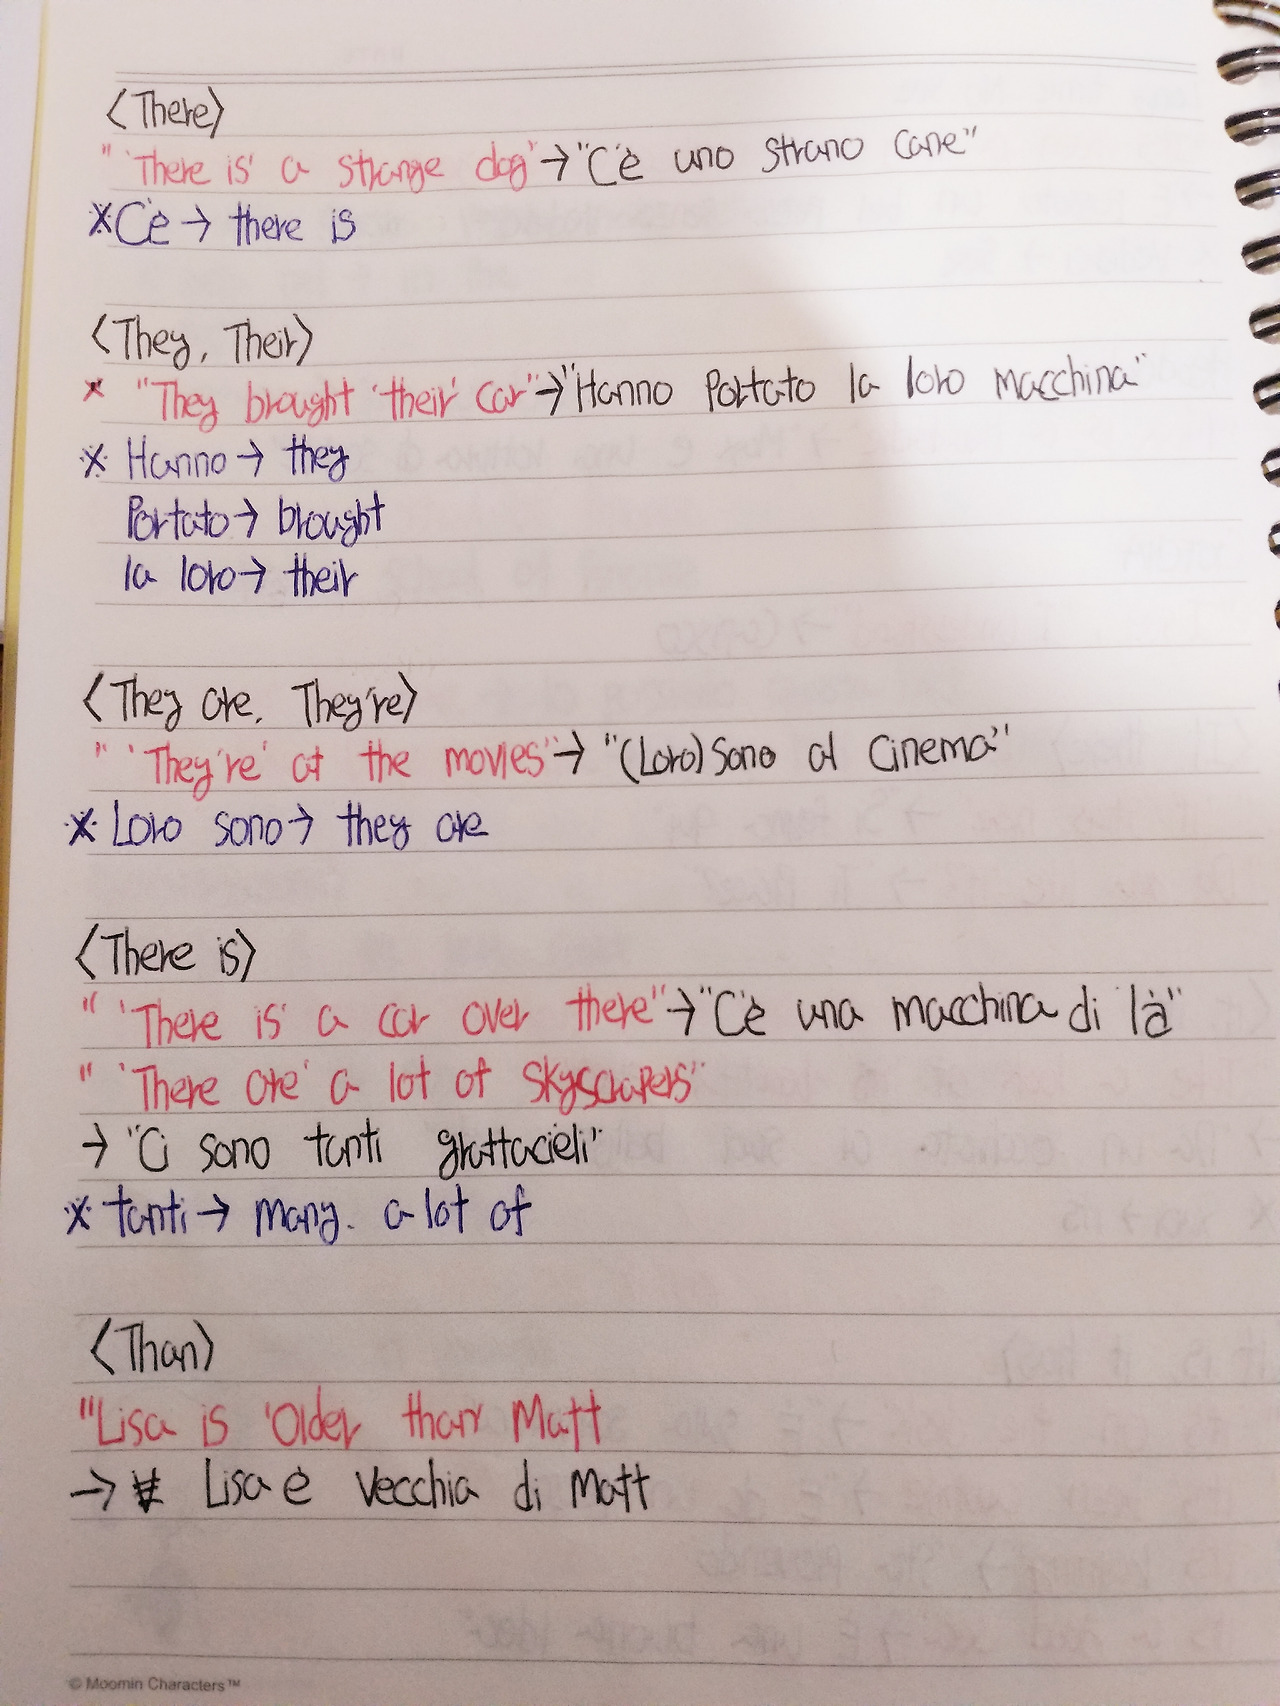 <There>
" 'There is' a strange dog" → "C'è uno strano cane"
※ C'è → there is
<They, Their>
* "They brought 'their' car" → "Hanno Portato la loro macchina"
※ Hanno → they
Portato → brought
la loro → their
<They are, They're>
" 'They're' at the movies" → "(Loro) Sono al Cinema"
※ Loro sono → they are
<There is>
" 'There is' a car over there" → "C'è una macchina di là"
" 'There are' a lot of skyscrapers"
→ "Ci sono tanti grattacieli"
※ tanti → many. a lot of
<Than>
"Lisa is 'Older than' Matt
→ Lisa è Vecchia di Matt
© Moomin Characters™